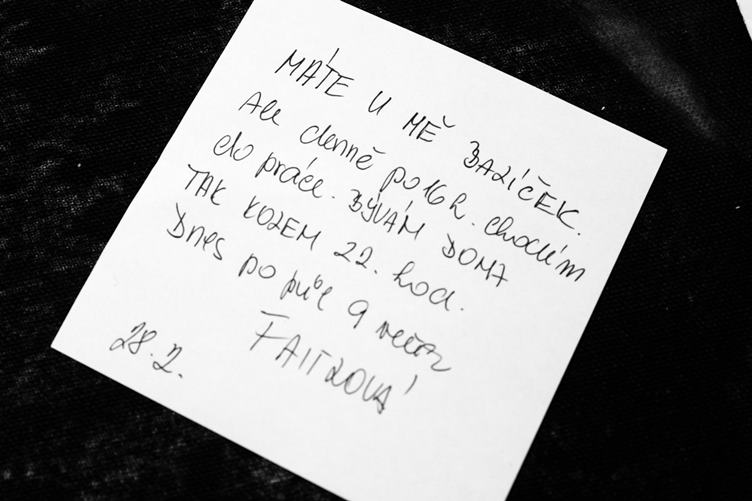 MÁTE U MĚ BALÍČEK.
Ale denně po 16h. chodím
do práce. BÝVÁM DOMA
TAK KOLEM 22. hod.
Dnes po půl 9 večer
FAITLOVÁ
28.2.